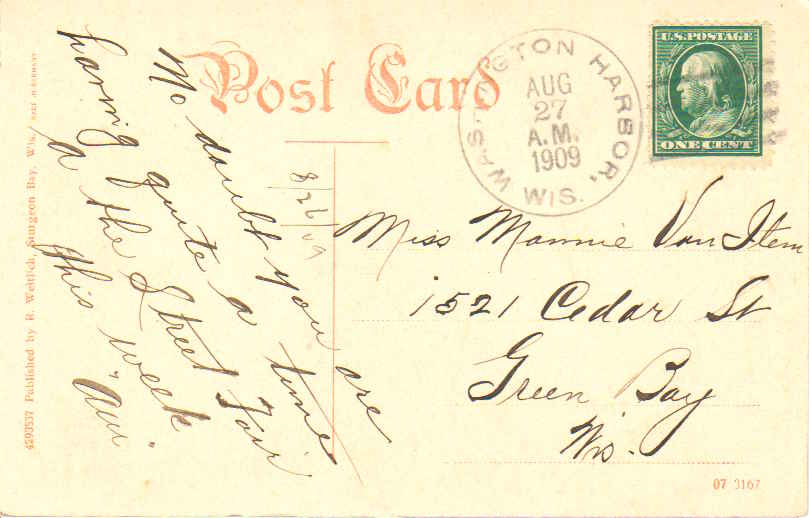 Post Card
WASHINGTON HARBOR, WIS.
AUG
27
A.M.
1909
U.S. POSTAGE
ONE CENT
No doubt you are
having quite a time
a the Street Fair
this week
8/26 09
Miss Mannie Van Item
1521 Cedar St
Green Bay
Wis.
4293537 Published by R. Weitlich, Sturgeon Bay, Wis.
07 3167